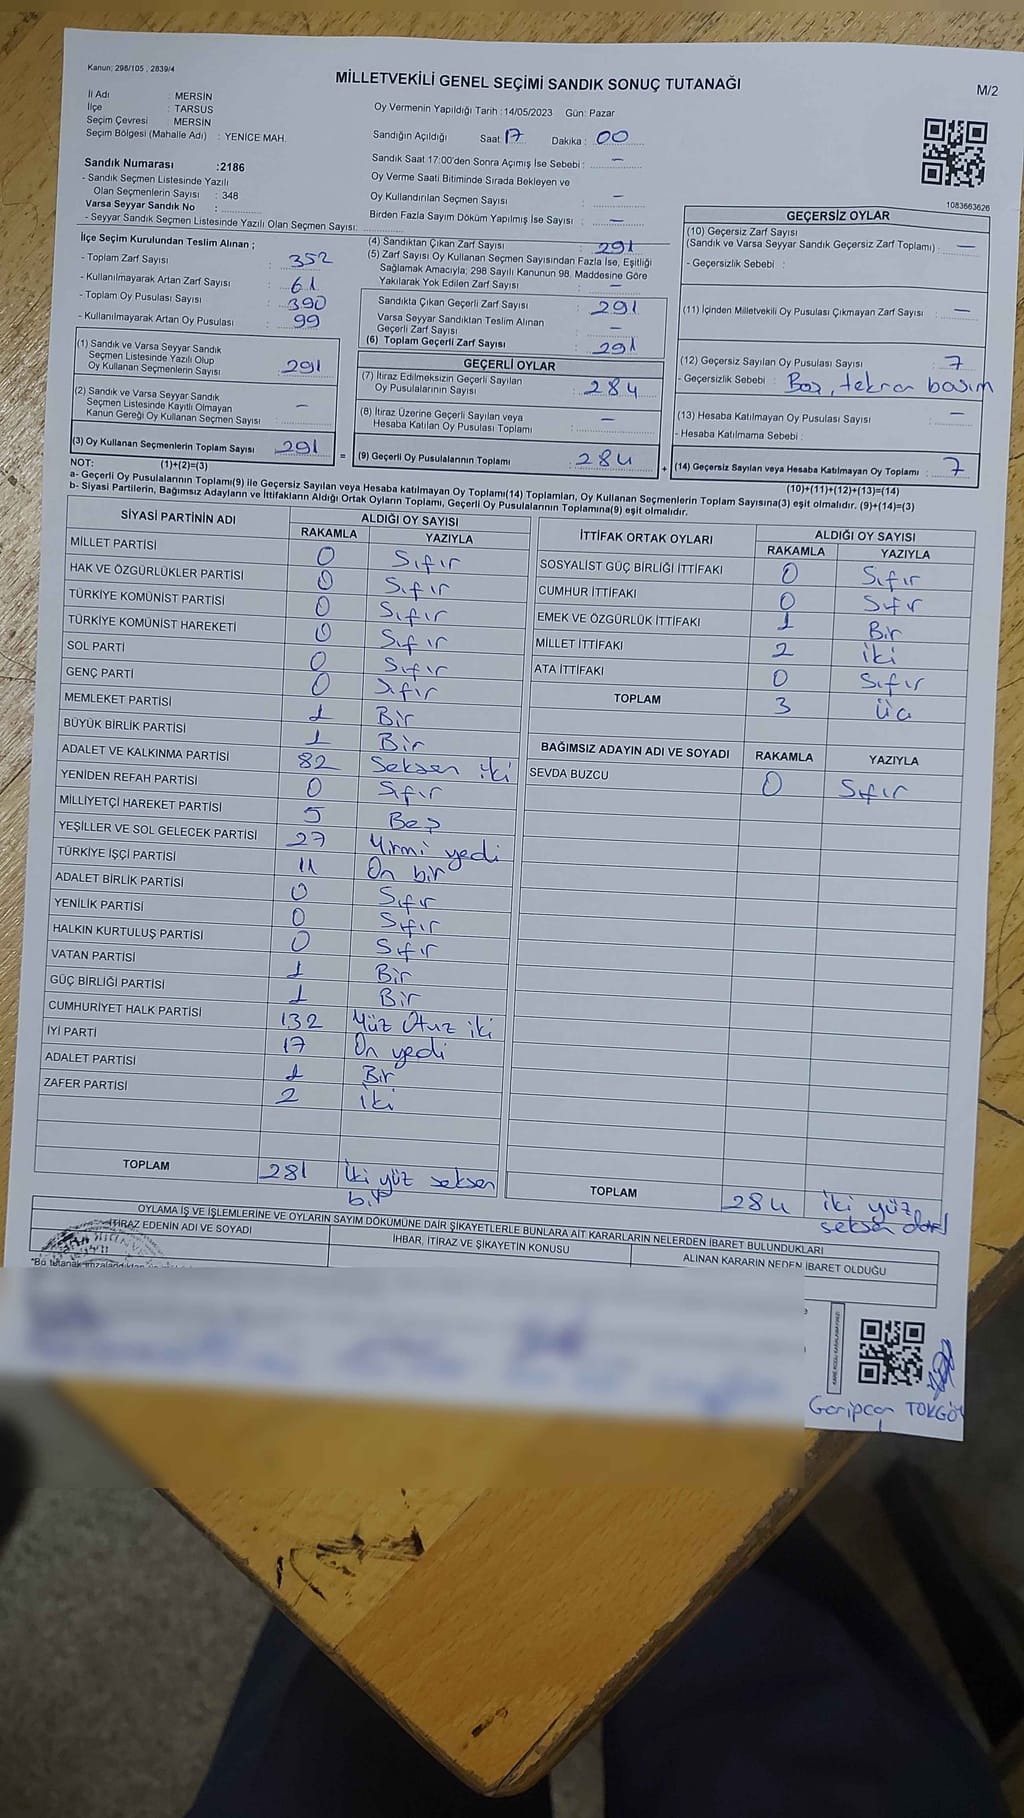 Kanun; 298/105 , 2839/4
MİLLETVEKİLİ GENEL SEÇİMİ SANDIK SONUÇ TUTANAĞI
M/2
İl Adı : MERSİN
İlçe : TARSUS
Seçim Çevresi : MERSİN
Seçim Bölgesi (Mahalle Adı) : YENİCE MAH.
Sandık Numarası :2186
- Sandık Seçmen Listesinde Yazılı
Olan Seçmenlerin Sayısı : 348
Varsa Seyyar Sandık No :
- Seyyar Sandık Seçmen Listesinde Yazılı Olan Seçmen Sayısı:
Oy Vermenin Yapıldığı Tarih :14/05/2023 Gün: Pazar
Sandığın Açıldığı Saat 17 Dakika : 00
Sandık Saat 17:00'den Sonra Açımış İse Sebebi : —
Oy Verme Saati Bitiminde Sırada Bekleyen ve
Oy Kullandırılan Seçmen Sayısı : —
Birden Fazla Sayım Döküm Yapılmış İse Sayısı : —
1083663626
İlçe Seçim Kurulundan Teslim Alınan ;
- Toplam Zarf Sayısı : 352
- Kullanılmayarak Artan Zarf Sayısı : 61
- Toplam Oy Pusulası Sayısı : 390
- Kullanılmayarak Artan Oy Pusulası : 99
(1) Sandık ve Varsa Seyyar Sandık
Seçmen Listesinde Yazılı Olup
Oy Kullanan Seçmenlerin Sayısı : 291
(2) Sandık ve Varsa Seyyar Sandık
Seçmen Listesinde Kayıtlı Olmayan
Kanun Gereği Oy Kullanan Seçmen Sayısı : —
(3) Oy Kullanan Seçmenlerin Toplam Sayısı : 291
(1)+(2)=(3)
(4) Sandıktan Çıkan Zarf Sayısı : 291
(5) Zarf Sayısı Oy Kullanan Seçmen Sayısından Fazla İse, Eşitliği
Sağlamak Amacıyla; 298 Sayılı Kanunun 98. Maddesine Göre
Yakılarak Yok Edilen Zarf Sayısı : —
Sandıkta Çıkan Geçerli Zarf Sayısı : 291
Varsa Seyyar Sandıktan Teslim Alınan
Geçerli Zarf Sayısı : —
(6) Toplam Geçerli Zarf Sayısı : 291
GEÇERLİ OYLAR
(7) İtiraz Edilmeksizin Geçerli Sayılan
Oy Pusulalarının Sayısı : 284
(8) İtiraz Üzerine Geçerli Sayılan veya
Hesaba Katılan Oy Pusulası Toplamı : —
= (9) Geçerli Oy Pusulalarının Toplamı : 284 +
GEÇERSİZ OYLAR
(10) Geçersiz Zarf Sayısı
(Sandık ve Varsa Seyyar Sandık Geçersiz Zarf Toplamı) : —
- Geçersizlik Sebebi :
(11) İçinden Milletvekili Oy Pusulası Çıkmayan Zarf Sayısı : —
(12) Geçersiz Sayılan Oy Pusulası Sayısı : 7
- Geçersizlik Sebebi : Boş, tekrar basım
(13) Hesaba Katılmayan Oy Pusulası Sayısı : —
- Hesaba Katılmama Sebebi :
(14) Geçersiz Sayılan veya Hesaba Katılmayan Oy Toplamı : 7
(10)+(11)+(12)+(13)=(14)
NOT:
a- Geçerli Oy Pusulalarının Toplamı(9) ile Geçersiz Sayılan veya Hesaba katılmayan Oy Toplamı(14) Toplamları, Oy Kullanan Seçmenlerin Toplam Sayısına(3) eşit olmalıdır. (9)+(14)=(3)
b- Siyasi Partilerin, Bağımsız Adayların ve İttifakların Aldığı Ortak Oyların Toplamı, Geçerli Oy Pusulalarının Toplamına(9) eşit olmalıdır.
SİYASİ PARTİNİN ADI ALDIĞI OY SAYISI
RAKAMLA YAZIYLA
MİLLET PARTİSİ 0 Sıfır
HAK VE ÖZGÜRLÜKLER PARTİSİ 0 Sıfır
TÜRKİYE KOMÜNİST PARTİSİ 0 Sıfır
TÜRKİYE KOMÜNİST HAREKETİ 0 Sıfır
SOL PARTİ 0 Sıfır
GENÇ PARTİ 0 Sıfır
MEMLEKET PARTİSİ 1 Bir
BÜYÜK BİRLİK PARTİSİ 1 Bir
ADALET VE KALKINMA PARTİSİ 82 Seksen iki
YENİDEN REFAH PARTİSİ 0 Sıfır
MİLLİYETÇİ HAREKET PARTİSİ 5 Beş
YEŞİLLER VE SOL GELECEK PARTİSİ 27 Yirmi yedi
TÜRKİYE İŞÇİ PARTİSİ 11 On bir
ADALET BİRLİK PARTİSİ 0 Sıfır
YENİLİK PARTİSİ 0 Sıfır
HALKIN KURTULUŞ PARTİSİ 0 Sıfır
VATAN PARTİSİ 1 Bir
GÜÇ BİRLİĞİ PARTİSİ 1 Bir
CUMHURİYET HALK PARTİSİ 132 Yüz Otuz iki
İYİ PARTİ 17 On yedi
ADALET PARTİSİ 1 Bir
ZAFER PARTİSİ 2 iki
TOPLAM 281 İki yüz seksen
bir
İTTİFAK ORTAK OYLARI ALDIĞI OY SAYISI
RAKAMLA YAZIYLA
SOSYALİST GÜÇ BİRLİĞİ İTTİFAKI 0 Sıfır
CUMHUR İTTİFAKI 0 Sıfır
EMEK VE ÖZGÜRLÜK İTTİFAKI 1 Bir
MİLLET İTTİFAKI 2 iki
ATA İTTİFAKI 0 Sıfır
TOPLAM 3 Üç
BAĞIMSIZ ADAYIN ADI VE SOYADI RAKAMLA YAZIYLA
SEVDA BUZCU 0 Sıfır
TOPLAM 284 iki yüz
seksen dört
OYLAMA İŞ VE İŞLEMLERİNE VE OYLARIN SAYIM DÖKÜMÜNE DAİR ŞİKAYETLERLE BUNLARA AİT KARARLARIN NELERDEN İBARET BULUNDUKLARI
İTİRAZ EDENİN ADI VE SOYADI İHBAR, İTİRAZ VE ŞİKAYETİN KONUSU ALINAN KARARIN NEDEN İBARET OLDUĞU
Garipcan TOKGÖZ